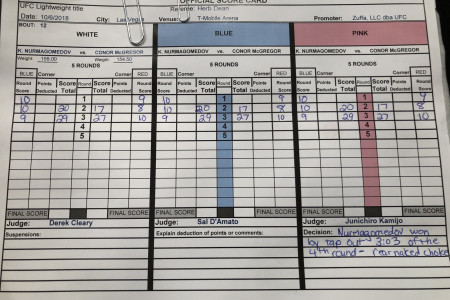 OFFICIAL SCORE CARD
UFC Lightweight title Referee: Herb Dean
Date: 10/6/2018 City: Las Vegas Venue: T-Mobile Arena Promoter: Zuffa, LLC dba UFC
BOUT: 12
WHITE BLUE PINK
K. NURMAGOMEDOV vs. CONOR McGREGOR K. NURMAGOMEDOV vs. CONOR McGREGOR K. NURMAGOMEDOV vs. CONOR McGREGOR
Weight 155.00 Weight 154.50
5 ROUNDS 5 ROUNDS 5 ROUNDS
BLUE Corner Corner RED BLUE Corner Corner RED BLUE Corner Corner RED
Round Score Points Deducted Score Total Score Total Points Deducted Round Score Round Score Points Deducted Score Total Score Total Points Deducted Round Score Round Score Points Deducted Score Total Score Total Points Deducted Round Score
10 1 9 10 1 9 10 1 9
10 20 2 17 8 10 20 2 17 8 10 20 2 17 8
9 29 3 27 10 9 29 3 27 10 9 29 3 27 10
4 4 4
5 5 5
FINAL SCORE FINAL SCORE FINAL SCORE FINAL SCORE FINAL SCORE FINAL SCORE
Judge: Derek Cleary Judge: Sal D'Amato Judge: Junichiro Kamijo
Suspensions: Explain deduction of points or comments: Decision: Nurmagomedov won
by tap out 3:03 of the
4th round - rear naked choke